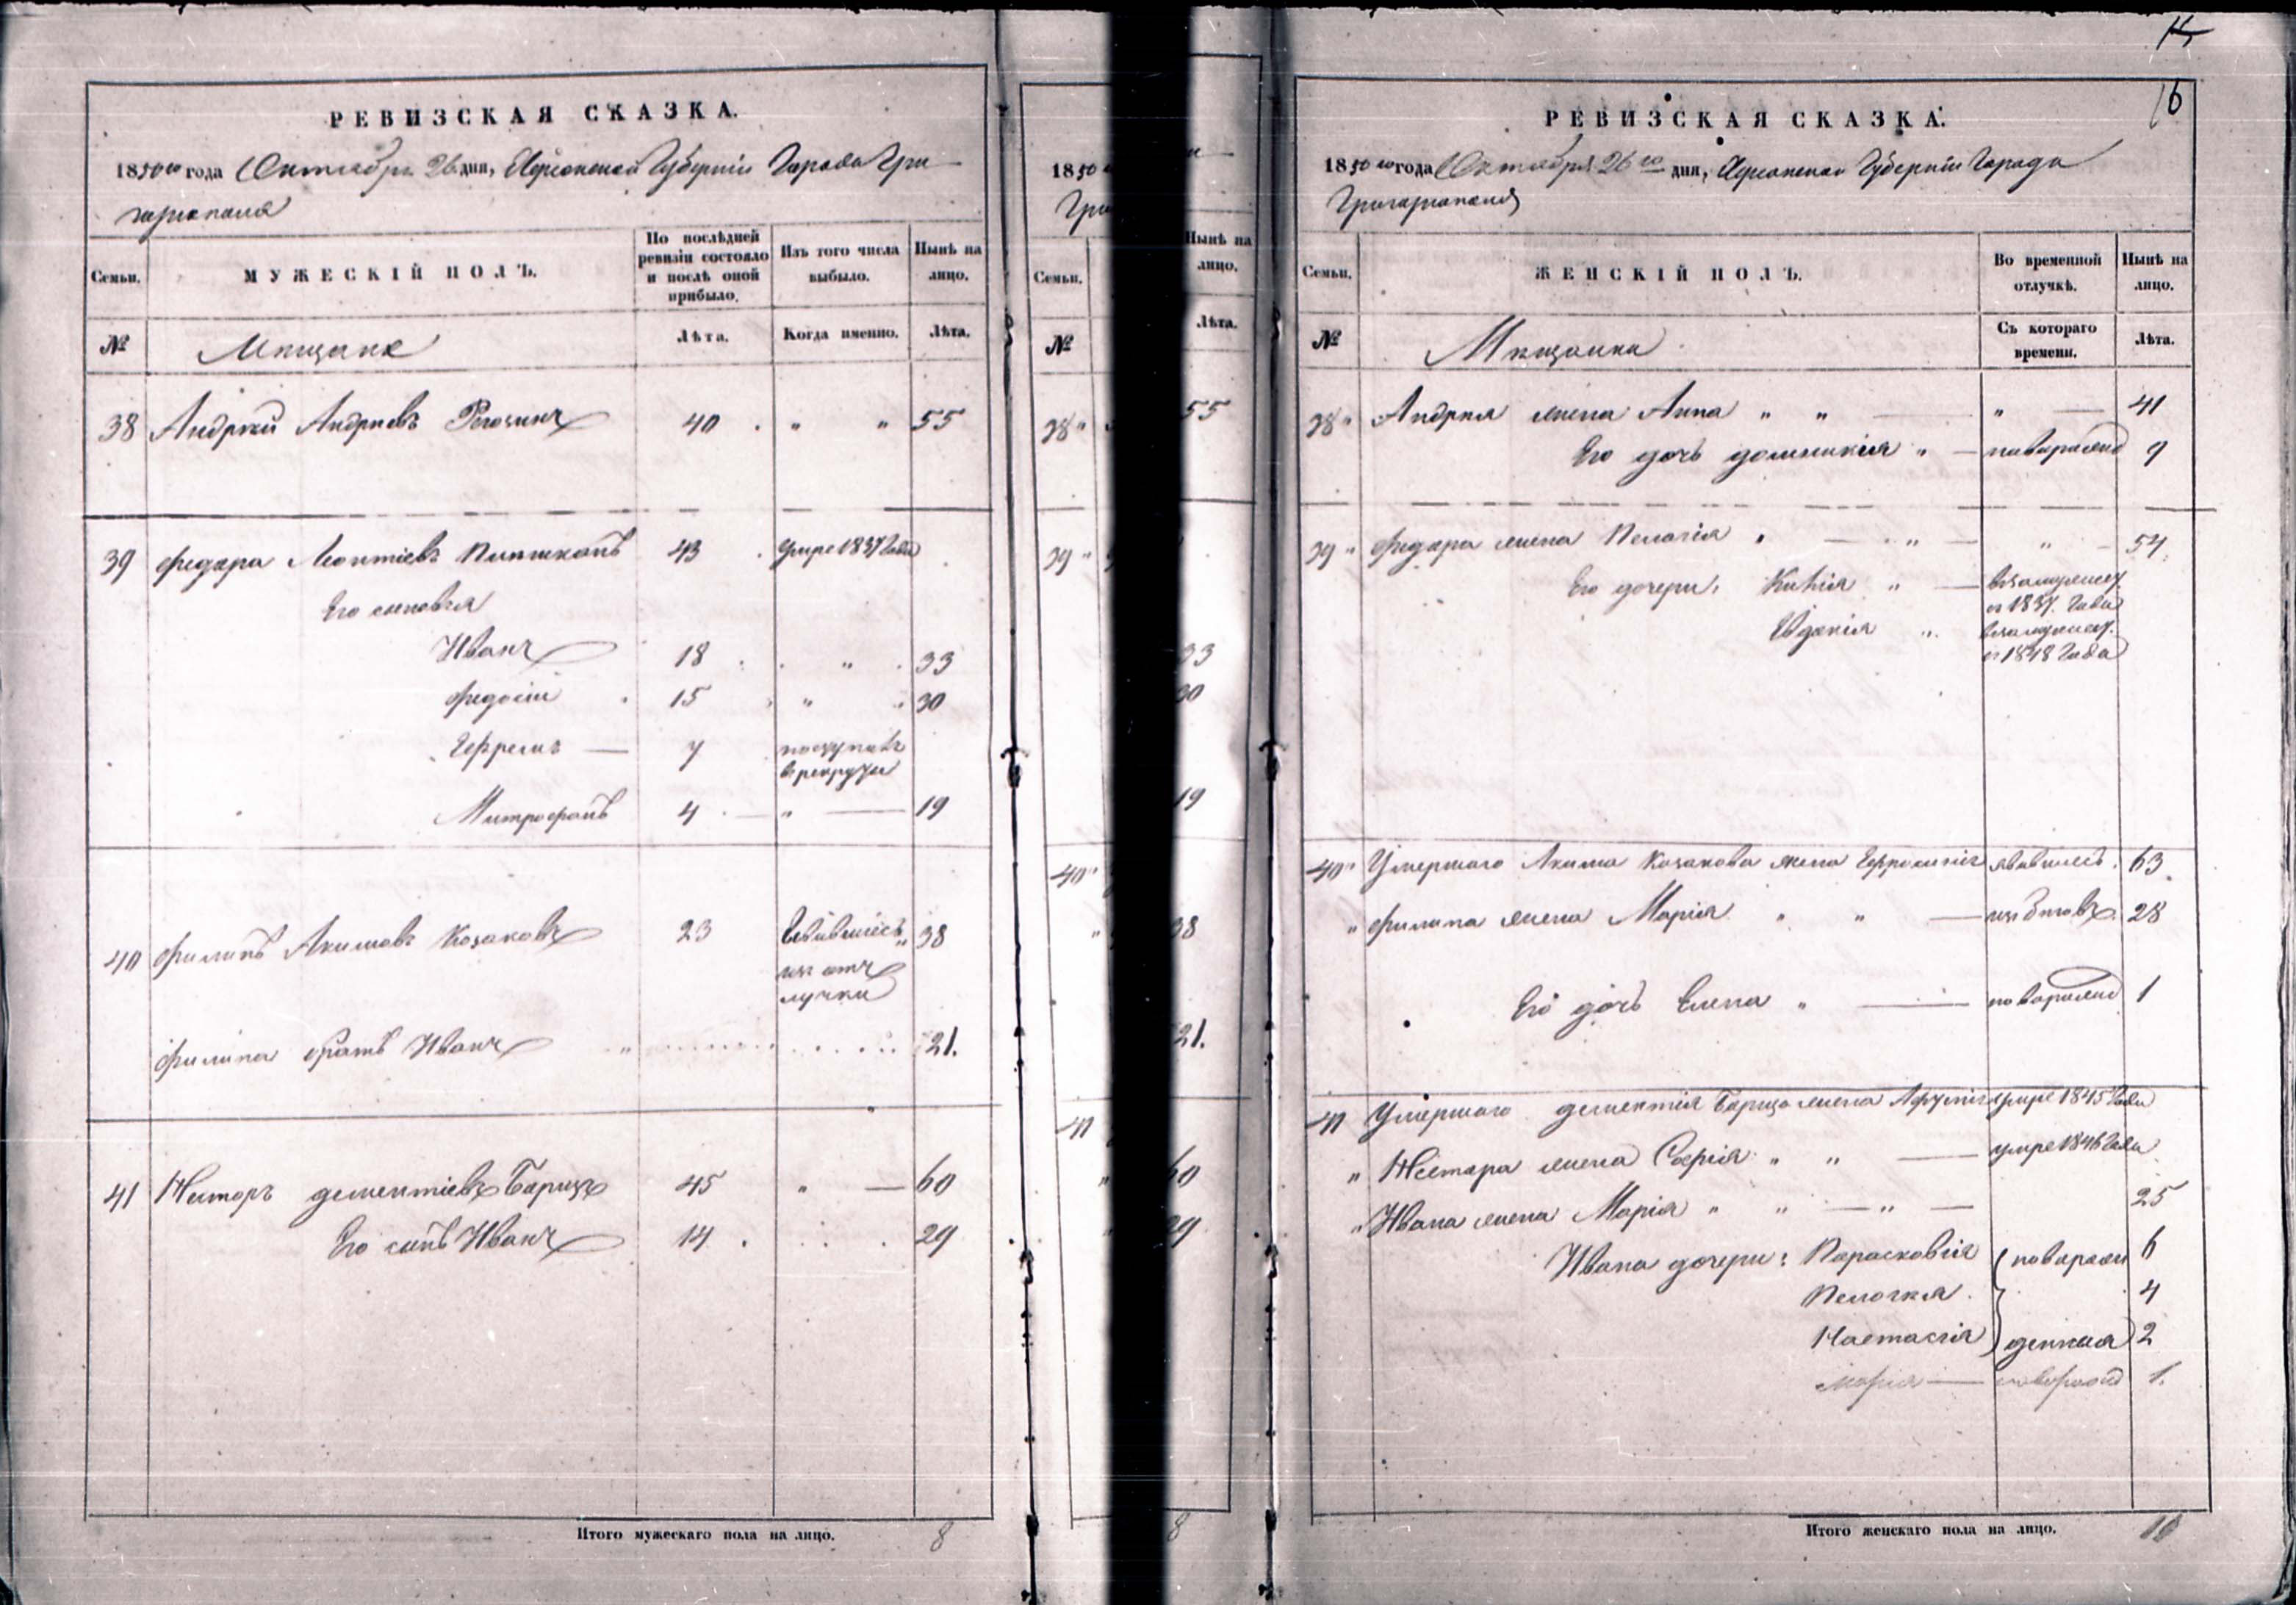 РЕВИЗСКАЯ СКАЗКА.
1850го года Октября 26 дня, Херсонской Губернии Города Гри
горіополя
Семьи.
МУЖЕСКІЙ ПОЛЪ.
По послѣдней ревизіи состояло и послѣ оной прибыло.
Изъ того числа выбыло.
Нынѣ на лицо.
№
Мещане
Лѣта.
Когда именно.
Лѣта.
38 Андрей Андреевъ 40 " " 55
39 Федора Леонтіевъ 43 умре 1837 Года
Его сыновья
Иванъ 18 " 33
Федосій 15 " 30
Ефремъ — 7 поступилъ
в рекруты
Митрофанъ 4 — " — 19
40 Филипъ Акимовъ Козаковъ 23 явившись 38
изъ от
лучки
Филипа братъ Иванъ " 21.
41 Несторъ дементіевъ Борщъ 45 " — 60
Его сынъ Иванъ 14 29
Итого мужескаго пола на лицо. 8
1850
Гри
Семьи.
№
38 "
39 "
40 "
"
41
"
Нынѣ на лицо.
Лѣта.
55
33
30
19
38
21.
60
29
8
16
РЕВИЗСКАЯ СКАЗКА.
1850 го года Октября 26 го дня, Херсонской Губернии Города
Григоріополя
Семьи.
ЖЕНСКІЙ ПОЛЪ.
Во временной отлучкѣ.
Нынѣ на лицо.
№
Мещанки
Съ котораго времени.
Лѣта.
38 " Андрея жена Анна " " — " — 41
Его дочь домникія " — новорожд 9
39 " Федора жена Пелагія " — " — " — 54
Его дочери: " — взамужест
съ 1837 Года
Евдокія " взамужест.
съ 1848 Года
40 " Умершаго Акима Козакова жена Ефросинія явившись 63
" Филипа жена Марія " " — изъ бѣговъ 28
Его дочь Елена " — новорожд 1
41 Умершаго дементія Борща жена умре 1845 Года
" Нестора жена Софія " " — умре 1846 Года
" Ивана жена Марія " " — " — 25
Ивана дочери: Парасковія новорожд 6
Пелагея 4
Настасія 2
Марія — новорожд 1.
Итого женскаго пола на лицо. 10